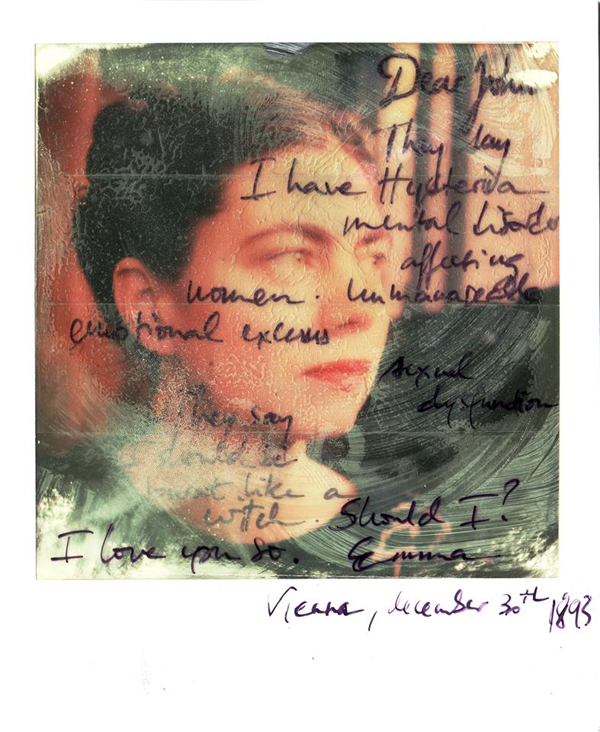 Dear John
They say
I have Hysteria
mental disorder
affecting
women. Unmanageable
emotional excesses
sexual
dysfunction
They say
I should be
burnt like a
witch. Should I?
I love you so. Emma
Vienna, december 30TH 1893